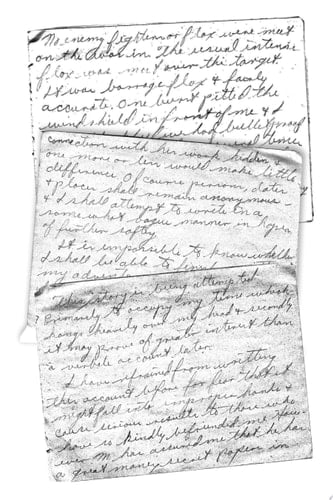 No enemy fighters or flax were met
on the division the usual intense
flax was met over the target.
It was barrage flax & fairly
accurate. One burst pitted the
windshield in front of me & I
bullet proof
connection with her work hidden in
one more or less would make little
difference. Of course persons, dates
& places shall remain anonymous
& I shall attempt to write in a
some what vague manner in hopes
of further safety.
It is impossible to know whether
I shall be able to
my adventure
This story is being attempted
primarily to occupy my time which
hangs heavily over my head & secondly
it may prove of greater interest than
a verbate account later.
I have refrained from writting
this account before for fear that it
might fall into improper hands &
cause serious results to those who
have so kindly befriended me. How-
ever M. has assured me that he has
a great many secret papers in